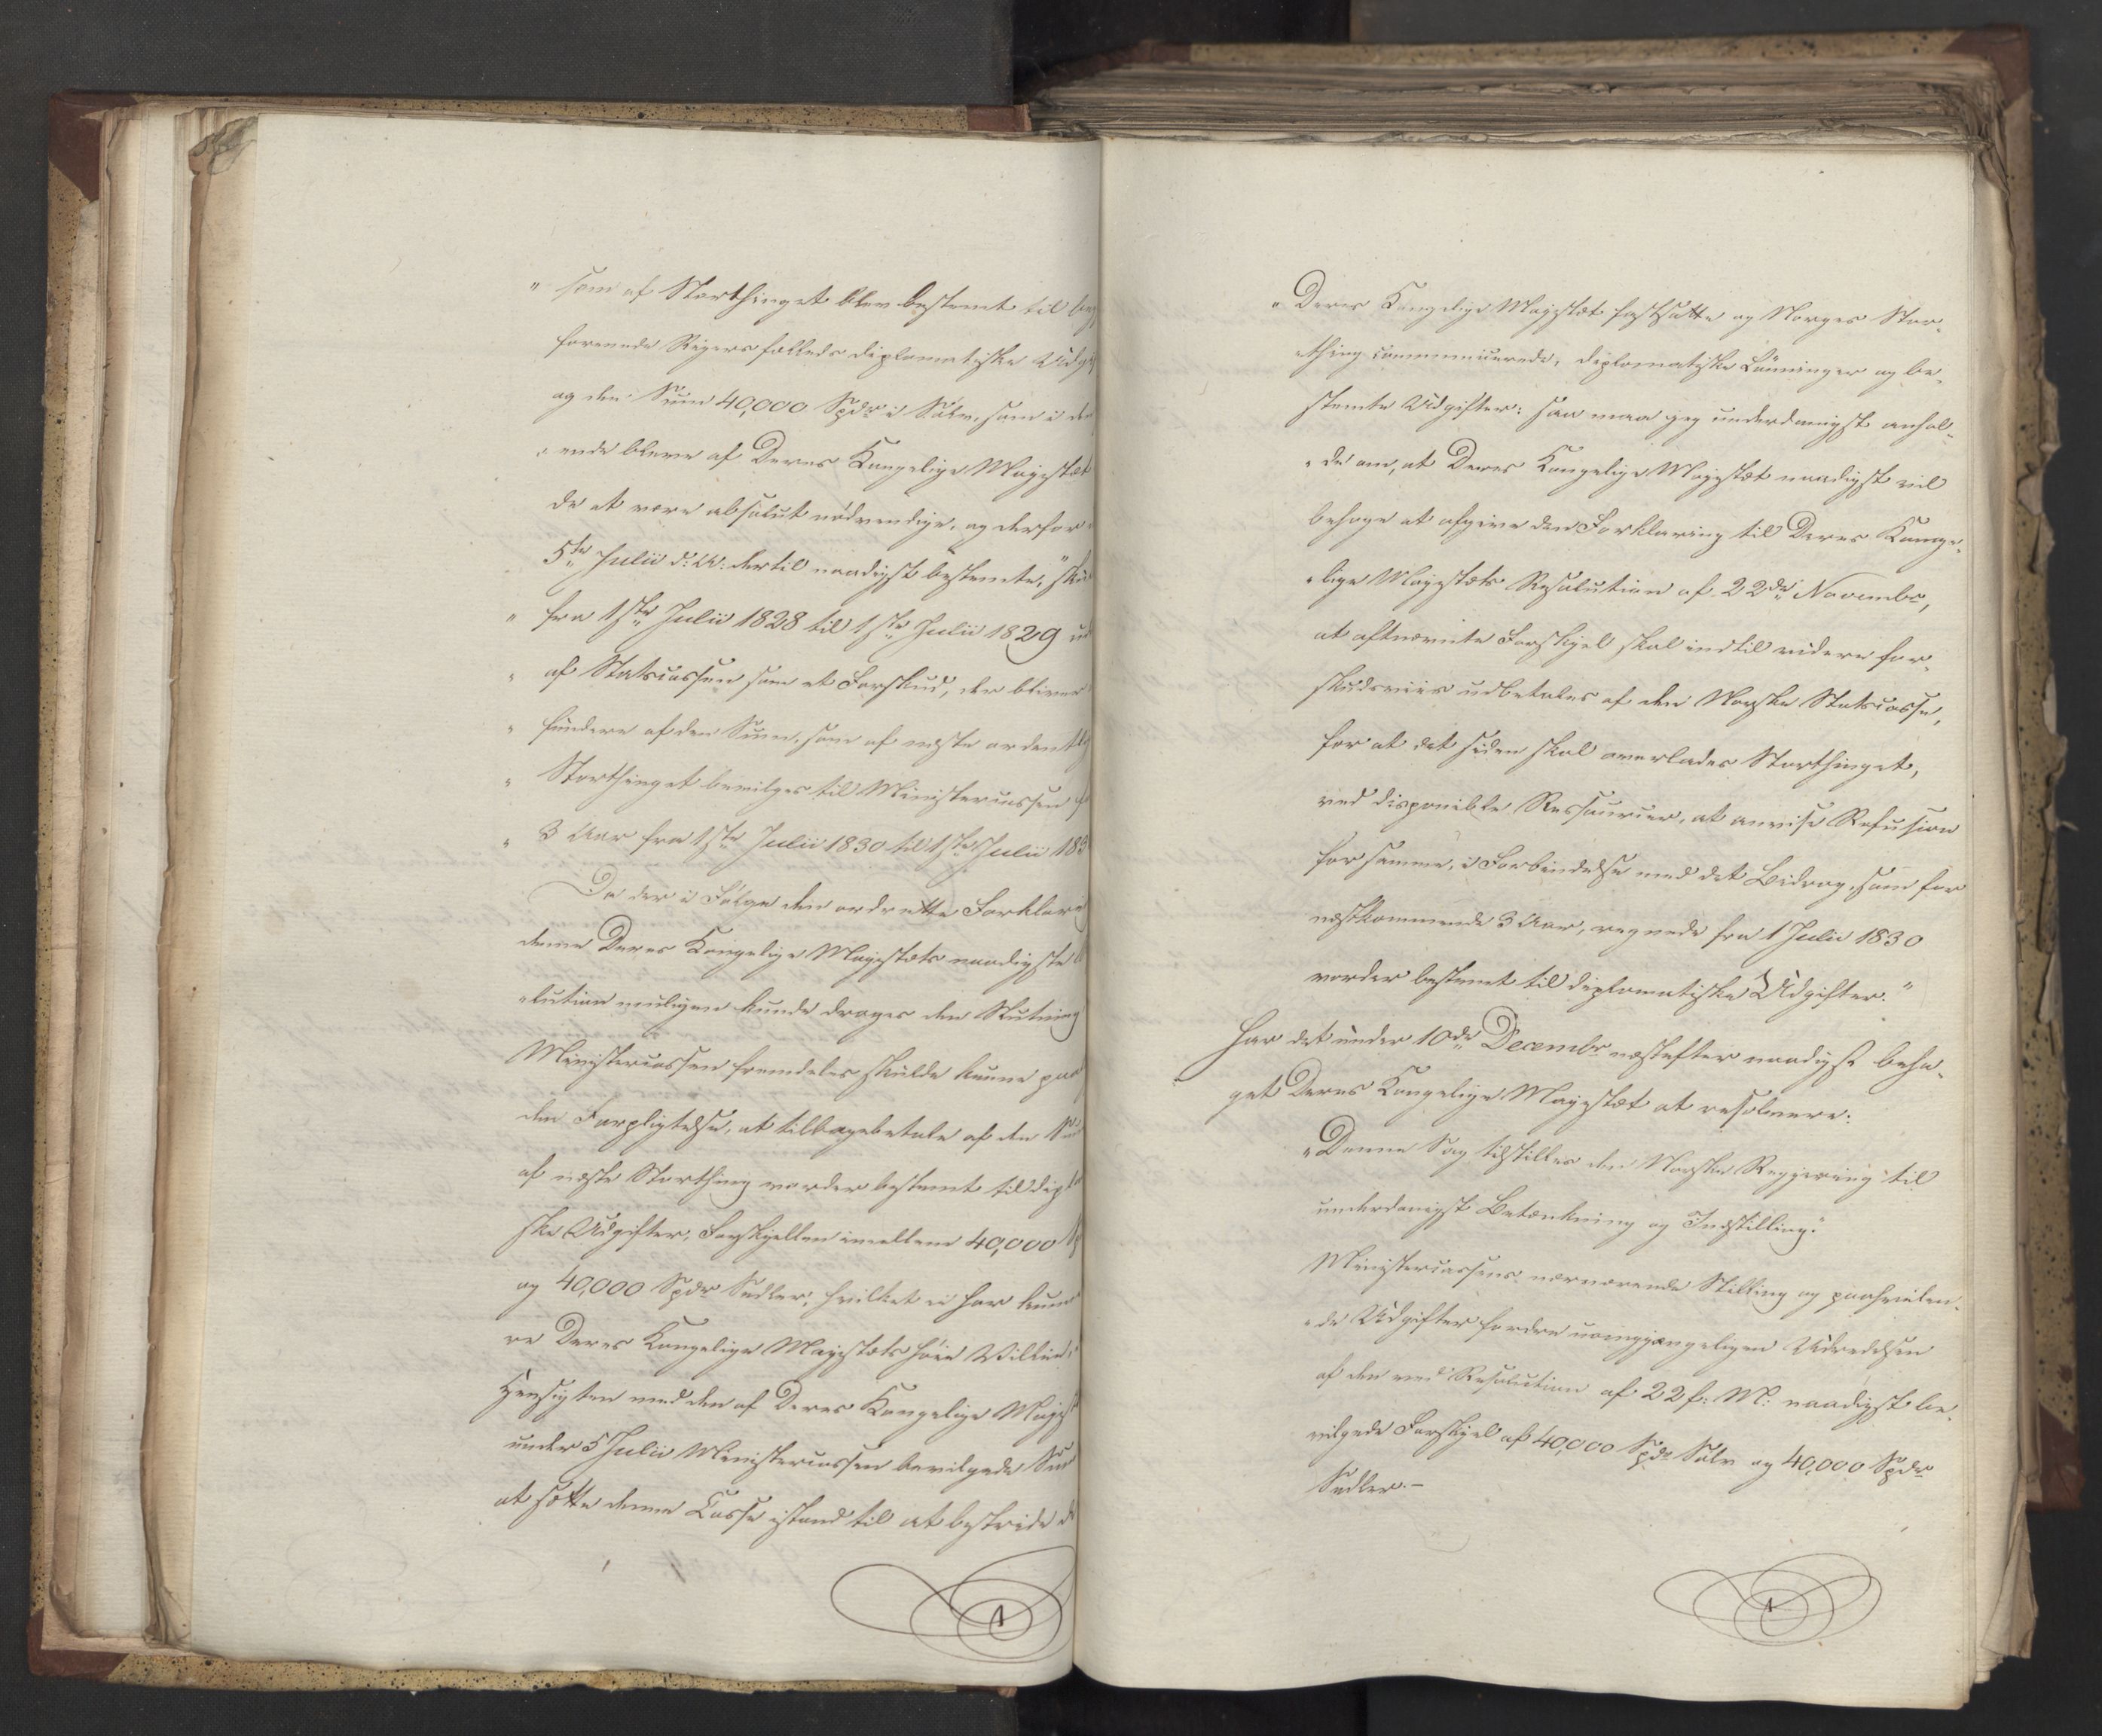 " som af Storthinget blev bestemt til be
forenede Rigers fælleds diplomatiske Udgif
og den Sum 40,000 Spdr i Sølv, som i den
" ende bleve af Deres Kongelige Majestæt
de at være absolut nødvendige, og derfor
5te Julii d: A: dertil naadigst bestemte, "skul
" fra 1ste Julii 1828 til 1ste Julii 1829 ud
" af Statscassen som et Forskud, der bliver
" fundere af den Sum, som af næste ordentlig
" Storthinget bevilges til Ministercassen f
" 3 Aar fra 1ste Julii 1830 til 1ste Julii 183
Da der i Følge den ordrette Forklarin
denne Deres Kongelige Majestæts naadigste
"lution muligen kunde drages den Slutning
Ministercassen fremdeles skulde kunne paa
den Forpligtelse, at tilbagebetale af den Su
af næste Storthing vorder bestemt til diplo
ske Udgifter, Forskjellen imellem 40,000 Sp
og 40,000 Spdr Sedler, hvilket ei har kun
re Deres Kongelige Majestæts høie Villie,
Hensigten med den af Deres Kongelige Majest
under 5 Julii Ministercassen bevilgede Sum
at sætte denne Casse istand til at bestride d
" Deres Kongelige Majestæt fastsatte og Norges Stor-
"thing communicerede, diplomatiske Lønninger og be-
stemte Udgifter: saa maa jeg underdanigst anhol-
"de om, at Deres Kongelige Majestæt naadigst vil
behage at afgive den Forklaring til Deres Konge-
"lige Majestæts Resolution af 22de Novembr,
at oftnævnte Forskjel skal indtil videre for-
skudsviis udbetales af den Norske Statscasse,
for at det siden skal overlades Storthinget,
ved disponible Ressourcer, at anvise Refusion
for samme, i Forbindelse med det Bidrag, som for
næstkommende 3 Aar, regnede fra 1 Julii 1830
vorder bestemt til diplomatiske Udgifter."
har det under 10de Decembr næstefter naadigst beha-
get Deres Kongelige Majestæt at resolvere:
"Denne Sag tilstilles den Norske Regjering til
underdanigst Betænkning og Indstilling."
Ministercassens nærværende Stilling og paahvilen-
"de Udgifter fordre uomgjængeligen Udredelsen
af den ved Resolution af 22 f: M: naadigst be-
vilgede Forskjel af 40,000 Spdr Sølv og 40,000 Spdr
Sedler.–